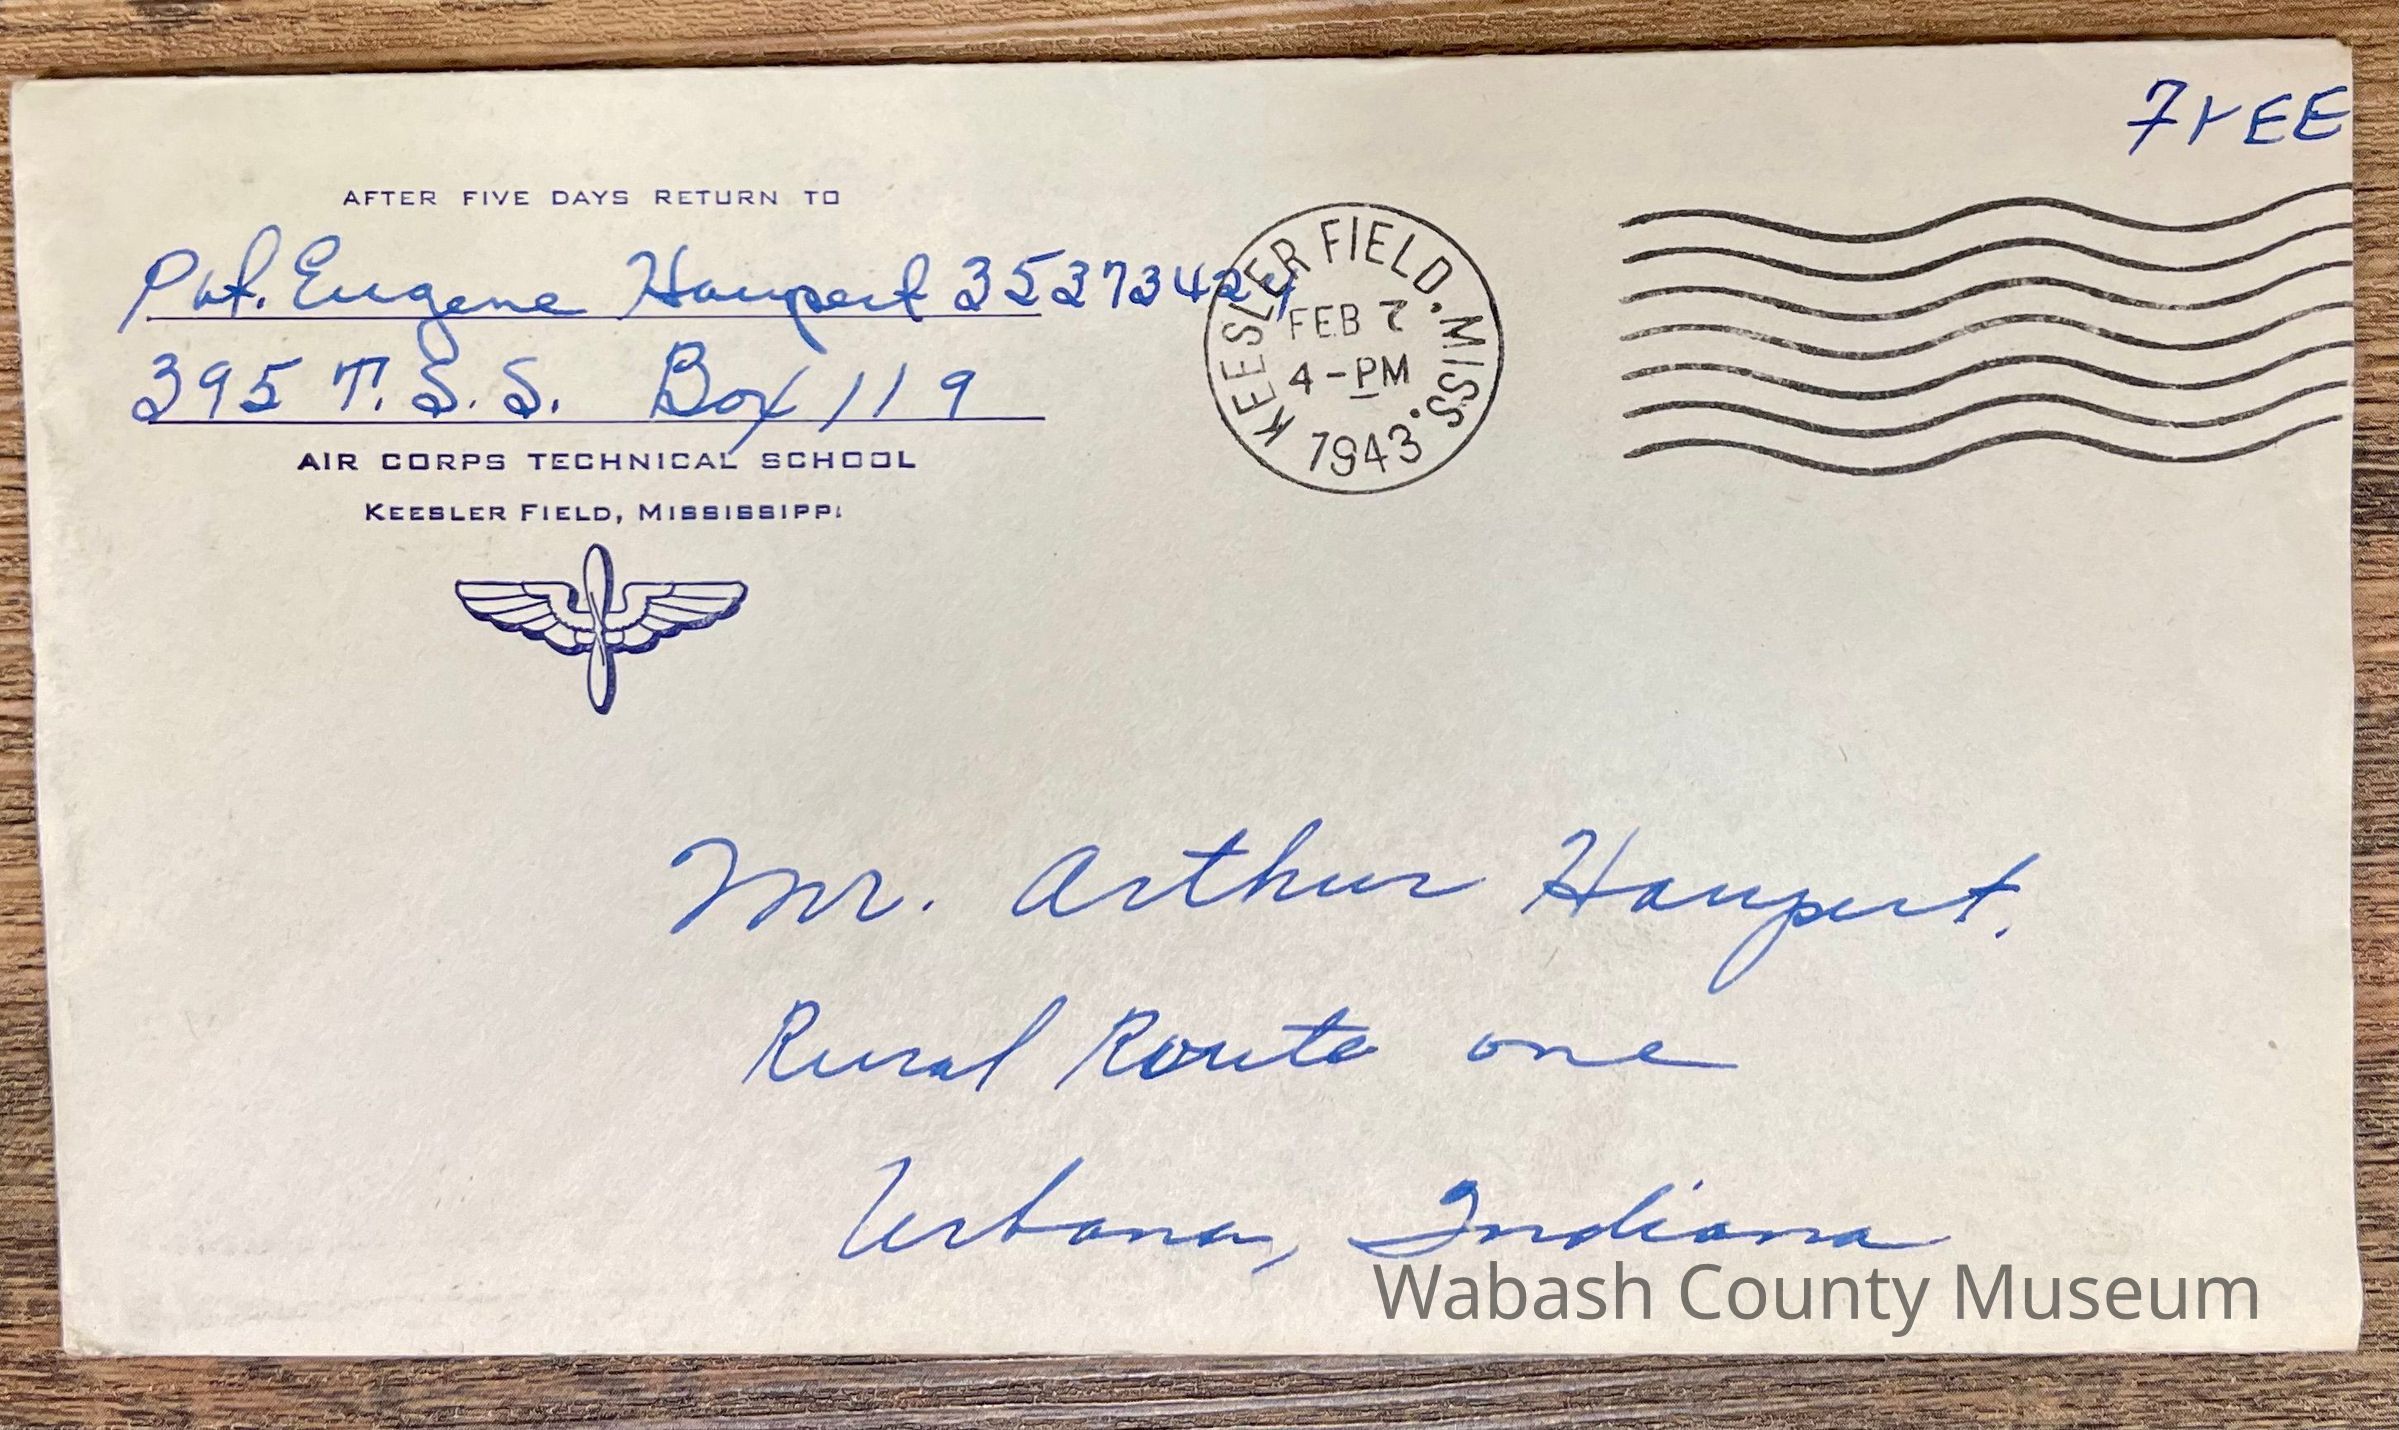 FrEE
AFTER FIVE DAYS RETURN TO
Pvt. Eugene Haupert
395 T.S.S. Box 119
AIR CORPS TECHNICAL SCHOOL
KEESLER FIELD, MISSISSIPPI
KEESLER FIELD, MISS.
FEB 7
4-PM
1943
Mr. Arthur Haupert.
Rural Route one
Urbana, Indiana
Wabash County Museum